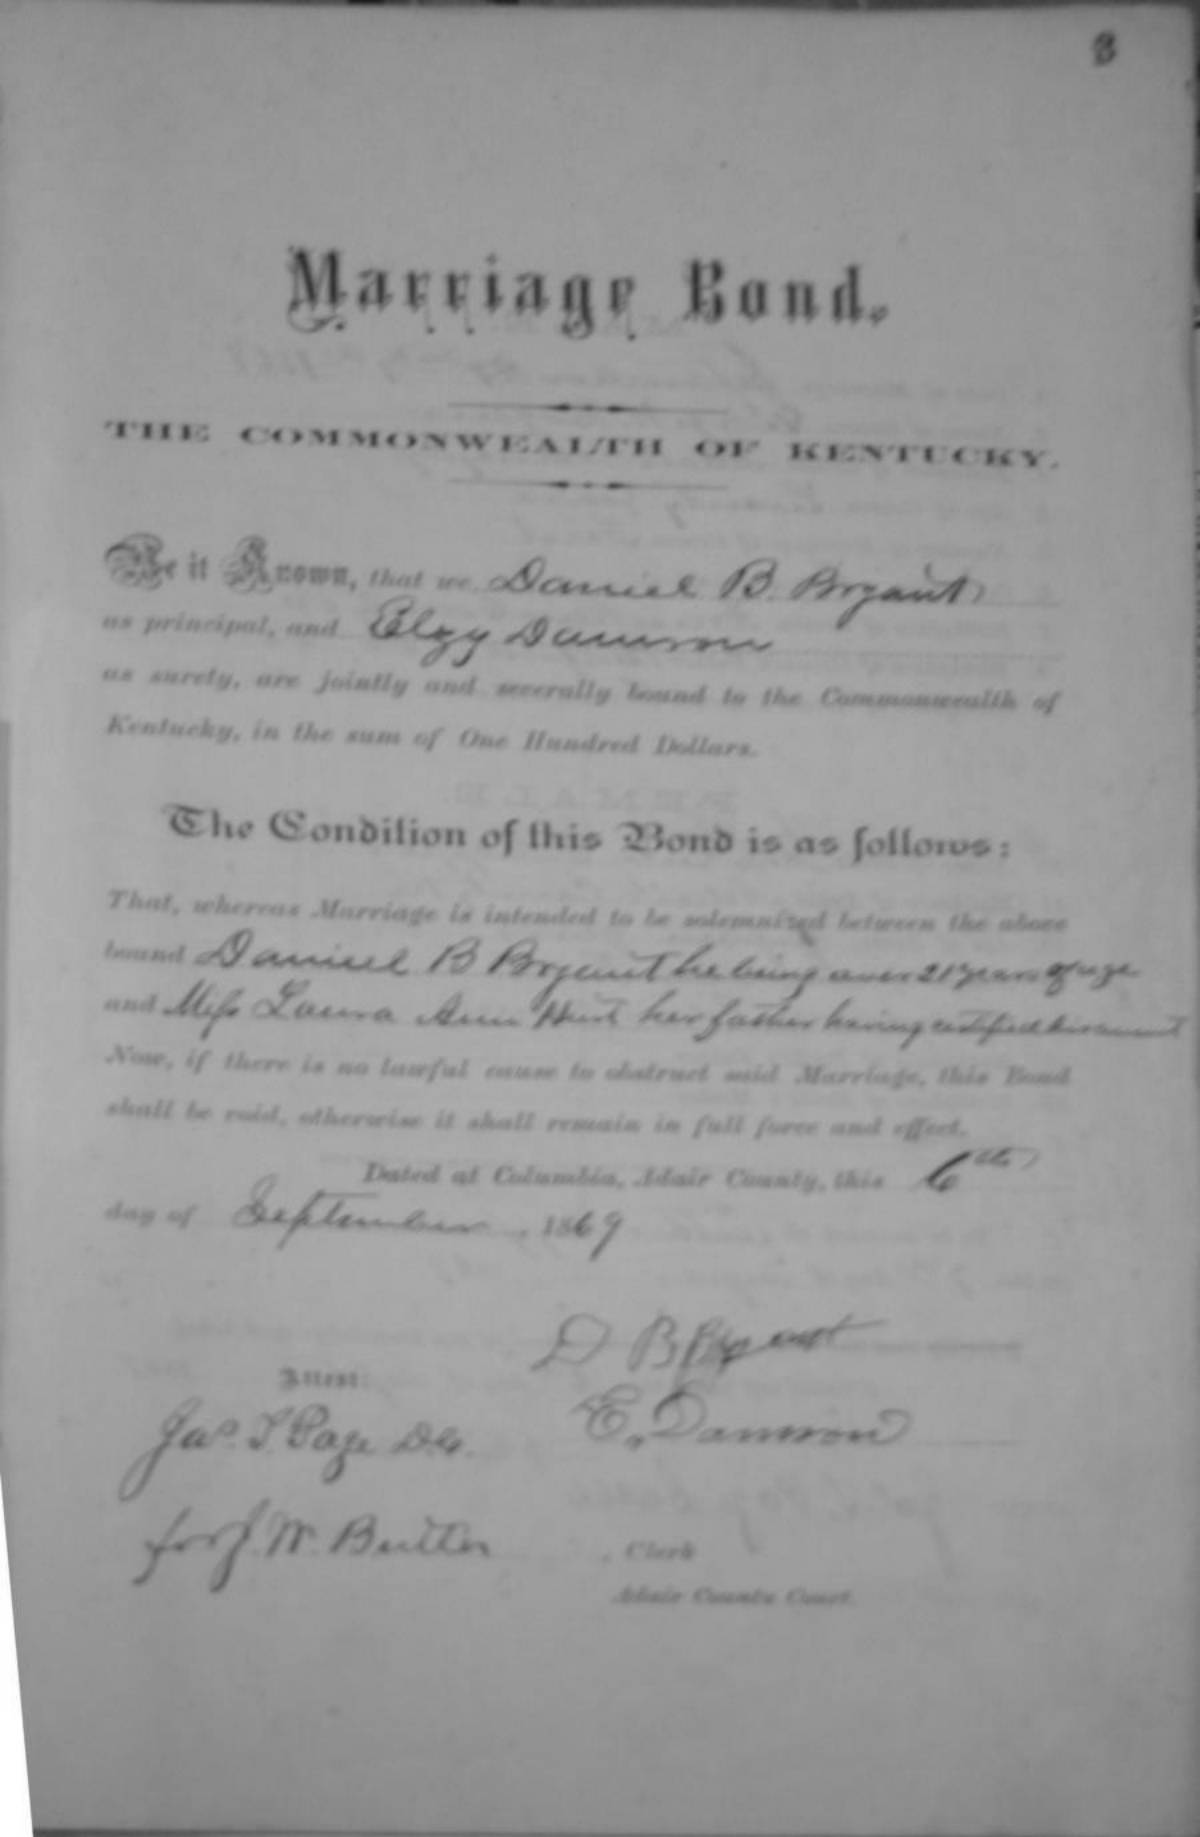 3
Marriage Bond.
THE COMMONWEALTH OF KENTUCKY.
Be it Known, that we Daniel B. Bryant
as principal, and Elzy Damron
as surety, are jointly and severally bound to the Commonwealth of
Kentucky, in the sum of One Hundred Dollars.
The Condition of this Bond is as follows:
That, whereas Marriage is intended to be solemnized between the above
bound Daniel B Bryant he being over 21 years of age
and Miss Laura Ann Hurt her father having certified his consent
Now, if there is no lawful cause to obstruct said Marriage, this Bond
shall be void, otherwise it shall remain in full force and effect.
Dated at Columbia, Adair County, this 6th
day of September, 1869
D B Bryant
Attest:
Jas. T. Page D.C.
E. Damron
for J. W. Butler
, Clerk
Adair County Court.